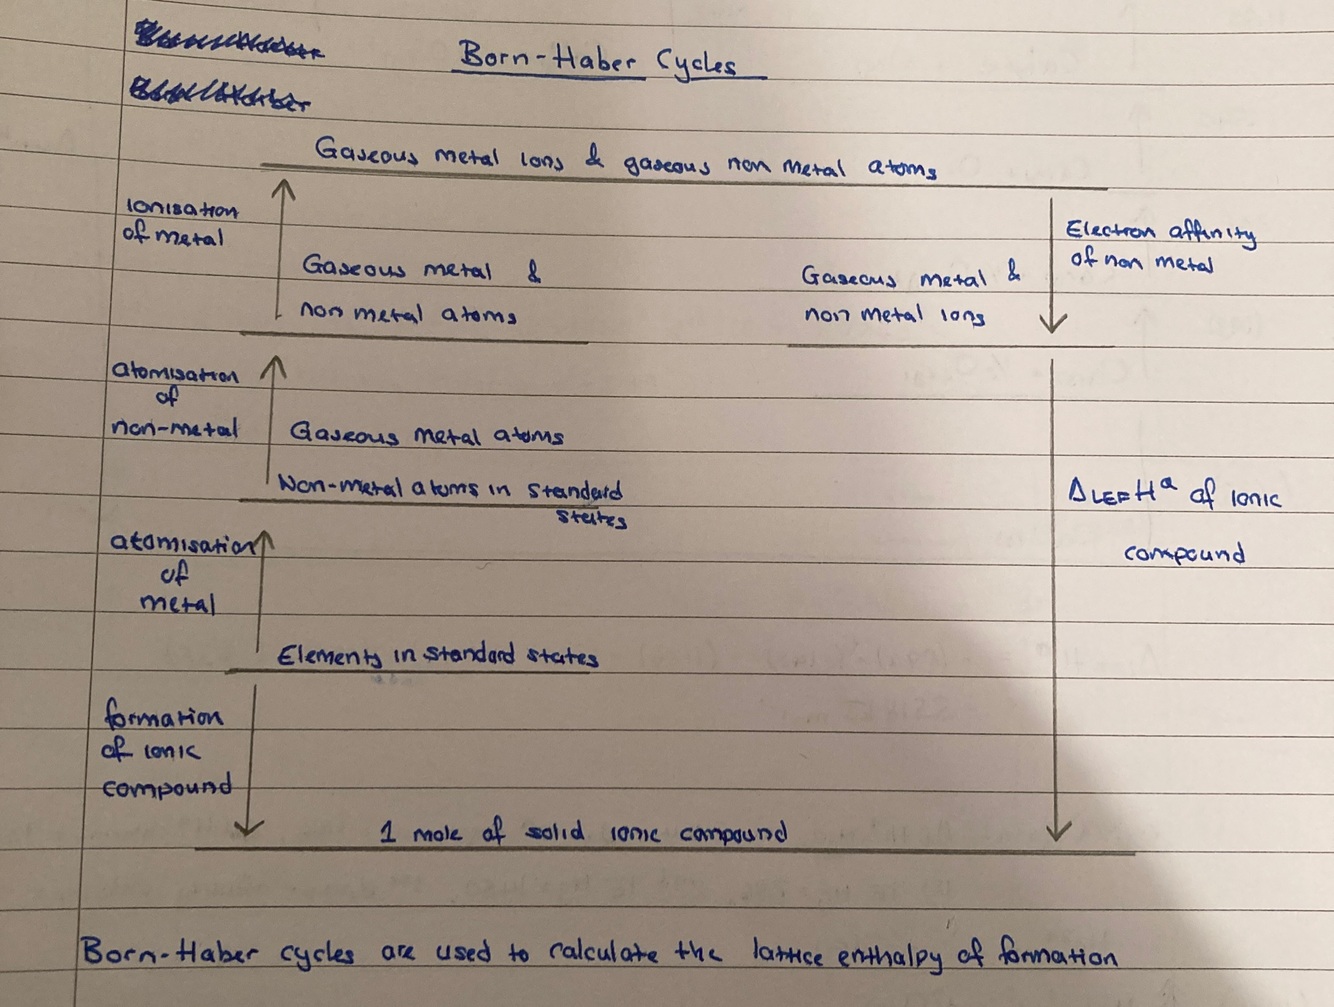 Born-Haber Cycles
Gaseous metal ions & gaseous non metal atoms
Ionisation
of metal
Electron affinity
of non metal
Gaseous metal &
non metal atoms
Gaseous metal &
non metal ions
atomisation
of
non-metal
Gaseous metal atoms
Non-metal atoms in standard
states
ΔLEFHᶿ of ionic
compound
atomisation
of
metal
Elements in standard states
formation
of ionic
compound
1 mole of solid ionic compound
Born-Haber cycles are used to calculate the lattice enthalpy of formation